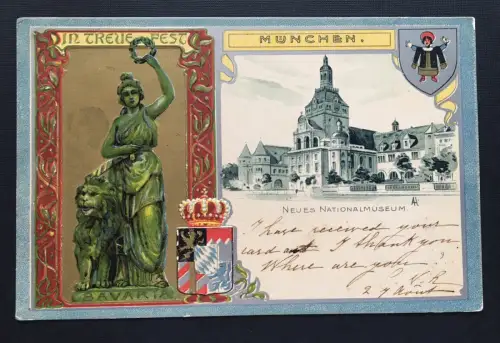 IN TREUE FEST
MÜNCHEN.
BAVARIA
NEUES NATIONALMUSEUM.
I have received your
card and I thank you.
Where are you?
V. R
2 9 Août